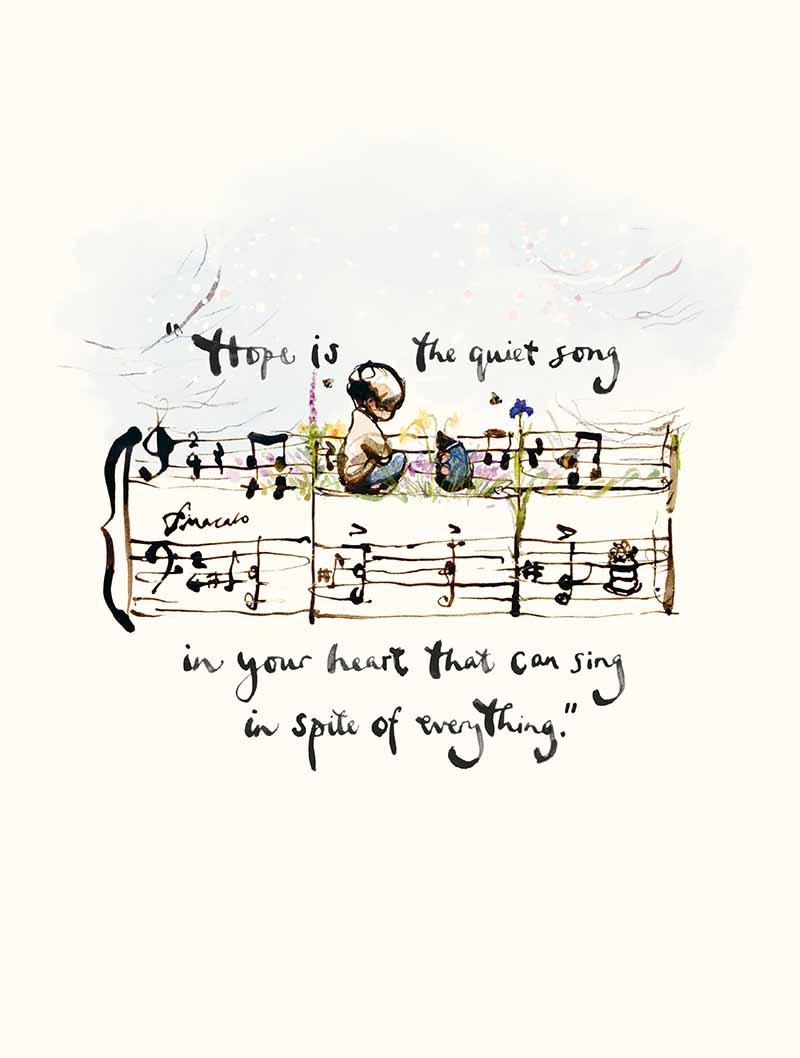 "Hope is the quiet song
2
4
2
in your heart that can sing
in spite of everything."